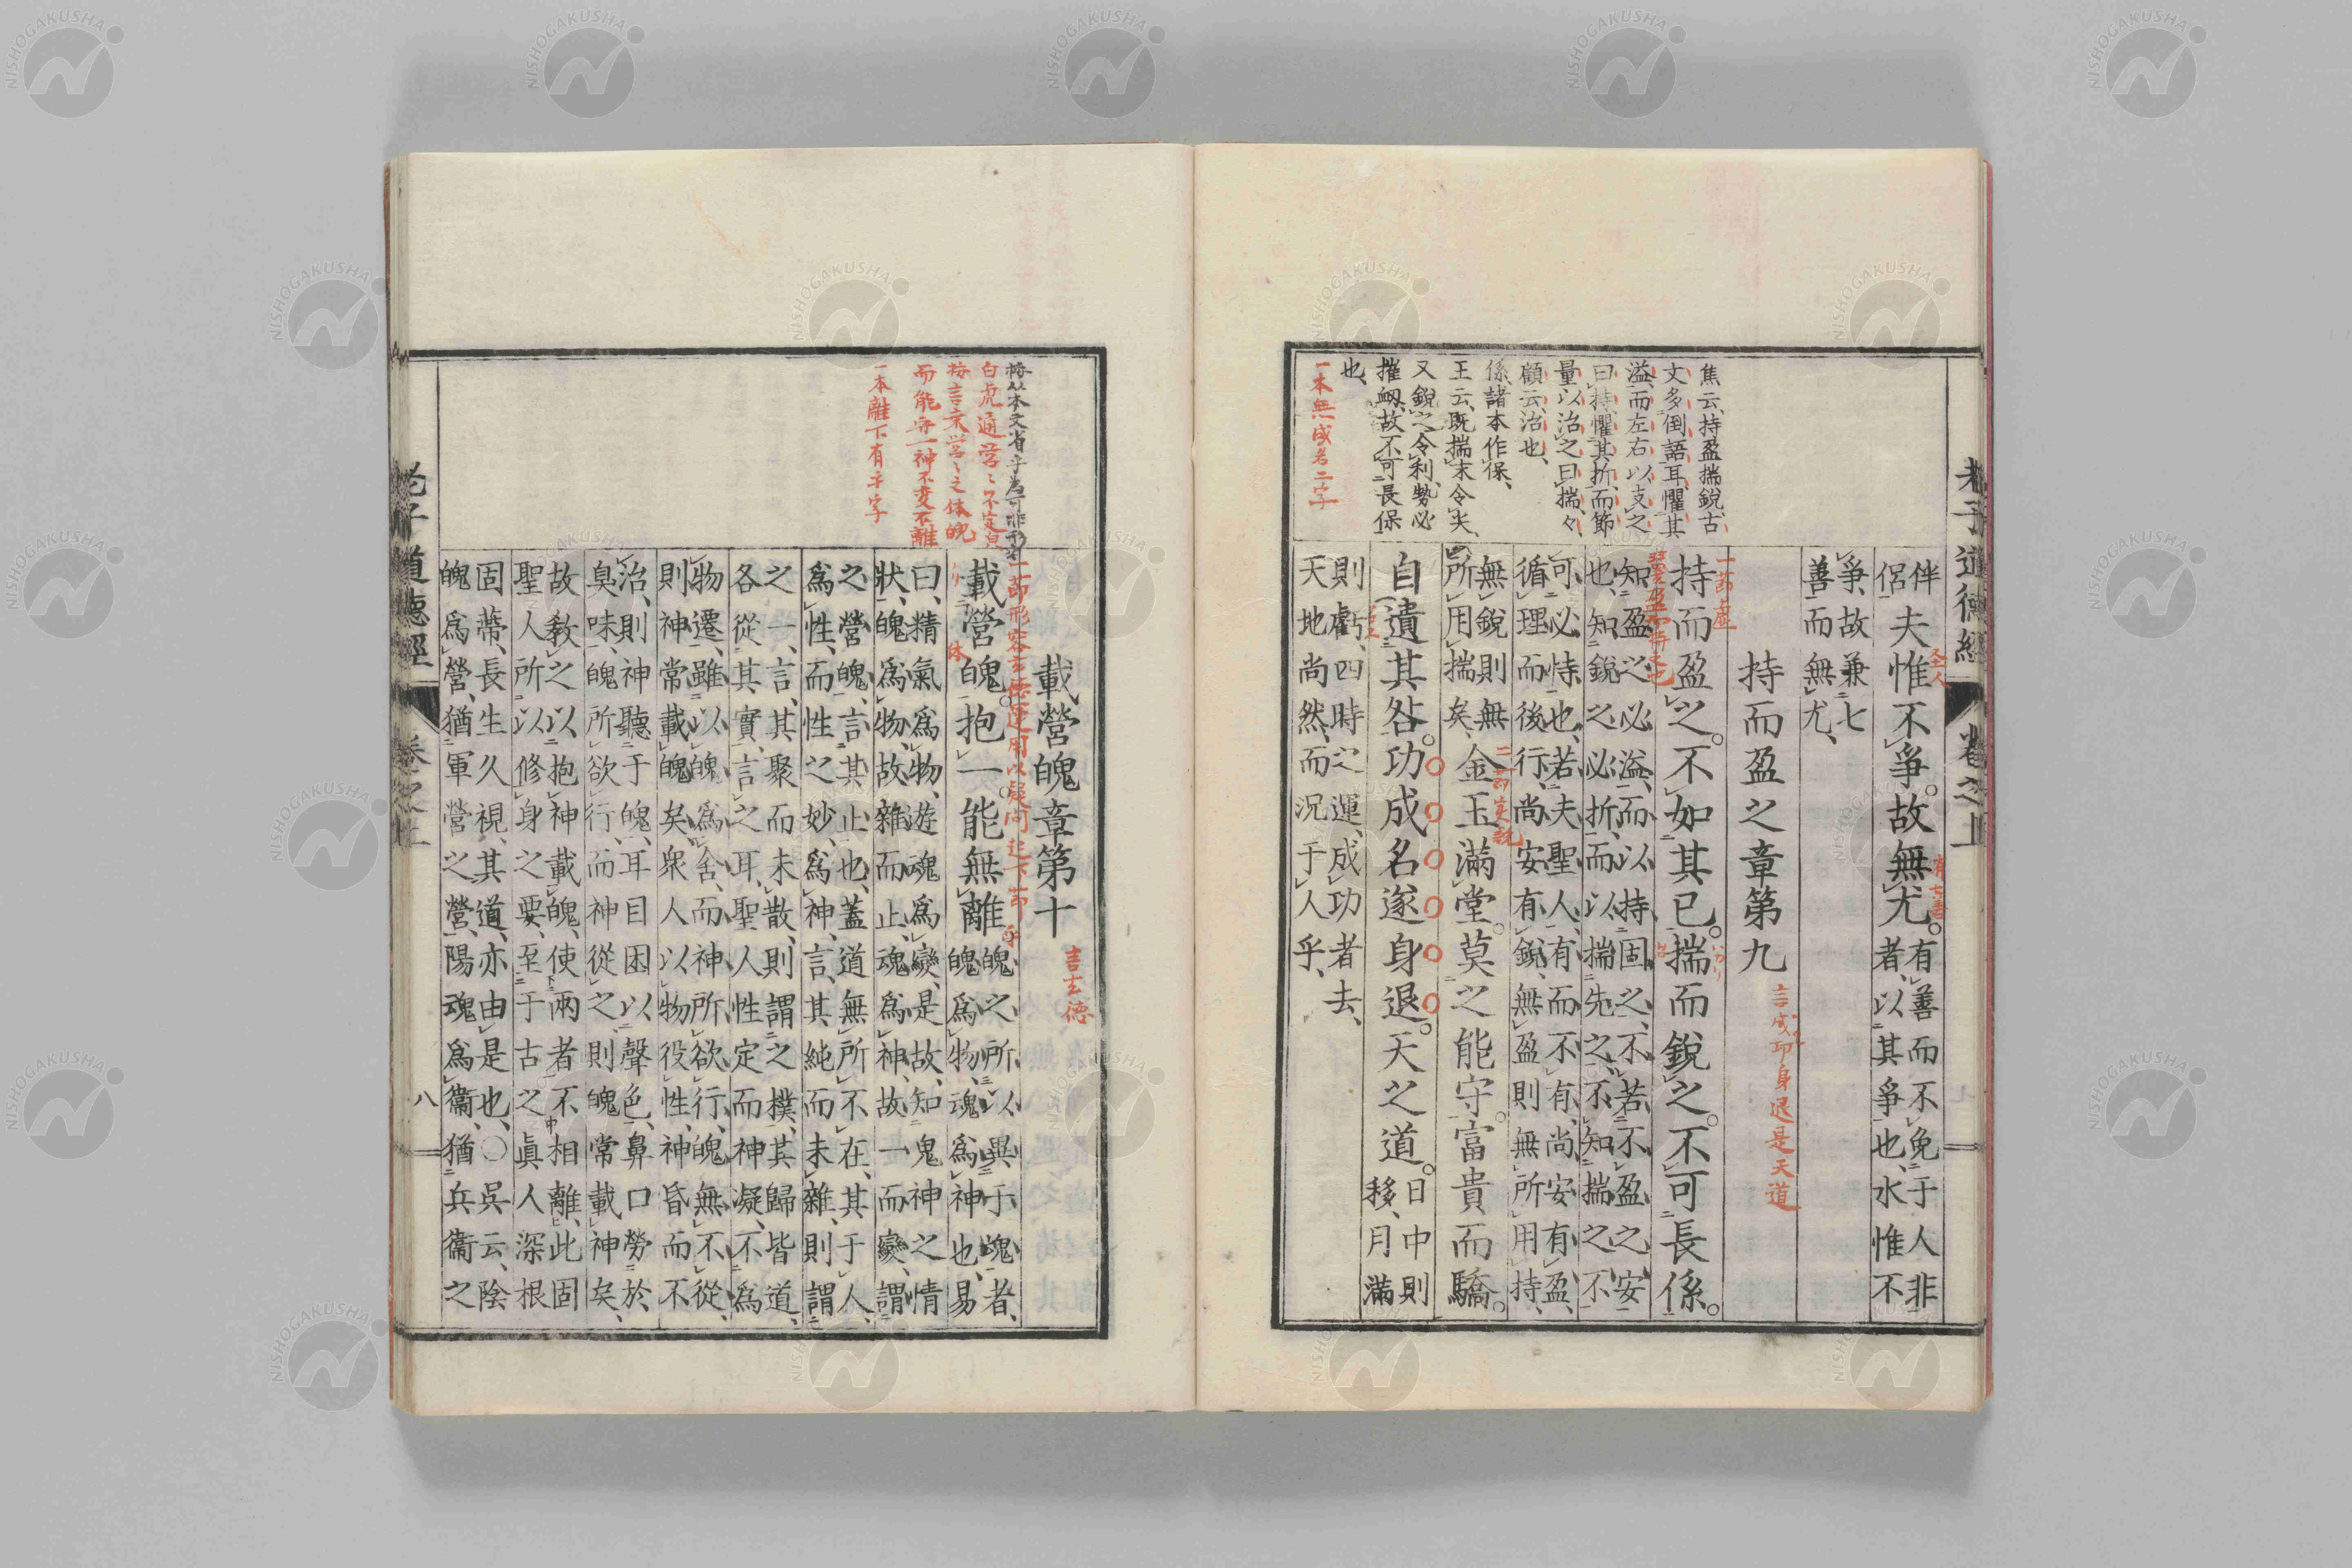 老子道德經 卷之上
伴侶
夫惟不爭。故無尤。
有善而不免于人非
者、以其爭也、水惟不
爭、故兼七
善而無尤、
持而盈之章第九
言成功身退是天道
一節虛
持而盈之。不如其已。揣而銳之。不可長係。
知盈之必溢、而以持固之、不若不盈之安
也、知銳之必折、而以揣先之、不知揣之不
可必恃也、若夫聖人、有而不有、尚安有盈、
循理而後行、尚安有銳、無盈則無所用持、
無銳則無
所用揣矣、
金玉滿堂。莫之能守。富貴而驕。
自遺其咎。功成名遂身退。天之道。
日中則
移、月滿
則虧、四時之運、成功者去、
天地尚然、而況于人乎、
焦云、持盈揣銳、古
文多倒語耳、懼其
溢、而左右以支之
曰持、懼其折、而節
量以治之曰揣、々
顧云、治也、
係、諸本作保、
王云、既揣末令尖、
又銳之令利、勢必
摧衂、故不可長保
也、
一本無成名二字
載營魄章第十
言玄德
一節形容玄德運用以疑問起下節
載營魄。抱一。能無離
乎
魄之所以異于魂者、
魄爲物、魂爲神也、易
曰、精氣爲物、遊魂爲變、是故知鬼神之情
狀、魄爲物、故雜而止、魂爲神、故一而變、謂
之營魄、言其止也、蓋道無所不在、其于人、
爲性、而性之妙、爲神、言其純而未雜、則謂
之一、言其聚而未散、則謂之樸、其歸皆道、
各從其實言之耳、聖人性定而神凝、不爲
物遷、雖以魄爲舍、而神所欲行、魄無不從、
則神常載魄矣、衆人以物役性、神昏而不
治、則神聽于魄、耳目困以聲色、鼻口勞於
臭味、魄所欲行、而神從之、則魄常載神矣、
故教之以抱神載魄、使兩者不相離、此固
聖人所以修身之要、至于古之眞人深根
固蔕、長生久視、其道亦由是也、〇吳云、陰
魄爲營、猶軍營之營、陽魂爲衞、猶兵衞之
白虎通營々不定貌
按言乘營々之体魄
而能守一神不變不離
一本離下有乎字
老子道德經 卷之上 八